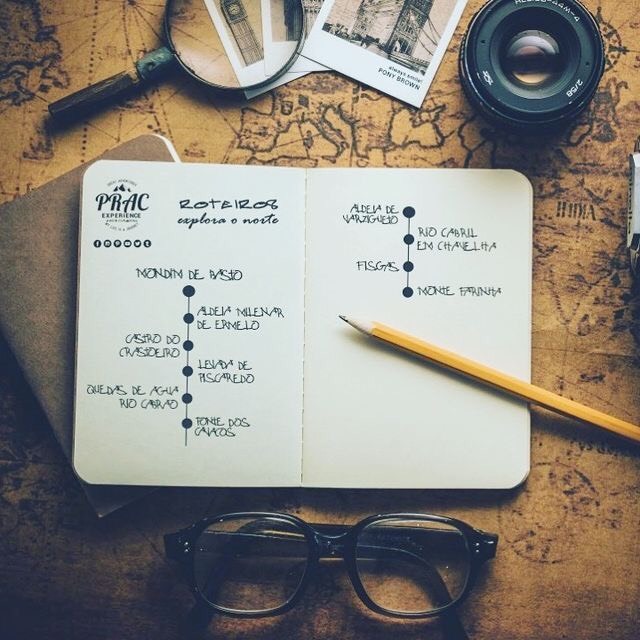 always smile!
PONY BROWN
PRAC
EXPERIENCE
ROTEIROS
explora o norte
MONDIM DE BASTO
ALDEIA MILENAR
DE ERMELO
CASTRO DO
CRASTOEIRO
LEVADA DE
PISCAREDO
QUEDAS DE AGUA
RIO CABRÃO
PONTE DOS
ALDEIA DE
VARZIGUETO
RIO CABRIL
EM CHAVELHA
FISGAS
MONTE FARINHA
INDIA
2/58